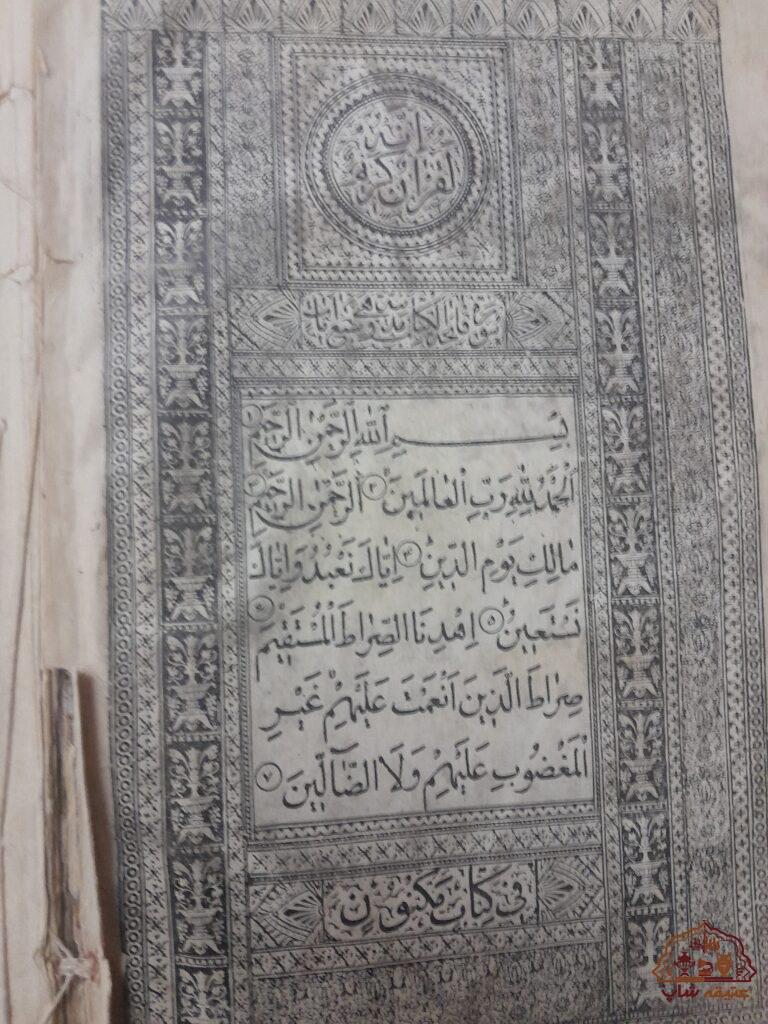 إنه
لقرآن كريم
سورة فاتحة الكتاب
بِسْمِ ٱللّٰهِ ٱلرَّحْمٰنِ ٱلرَّحِيمِ ١
اَلْحَمْدُ لِلّٰهِ رَبِّ الْعٰالَمِينَ ٢ اَلرَّحْمٰنِ الرَّحِيمِ ٣
مٰالِكِ يَوْمِ الدِّينِ ٤ اِيّٰاكَ نَعْبُدُ وَاِيّٰاكَ
نَسْتَعِينُ ٥ اِهْدِنَا الصِّرٰاطَ الْمُسْتَقِيمَ ٦
صِرٰاطَ الَّذِينَ اَنْعَمْتَ عَلَيْهِمْ غَيْرِ
الْمَغْضُوبِ عَلَيْهِمْ وَلَا الضَّآلِّينَ ٧
في كتاب مكنون
عتیقه شاپ